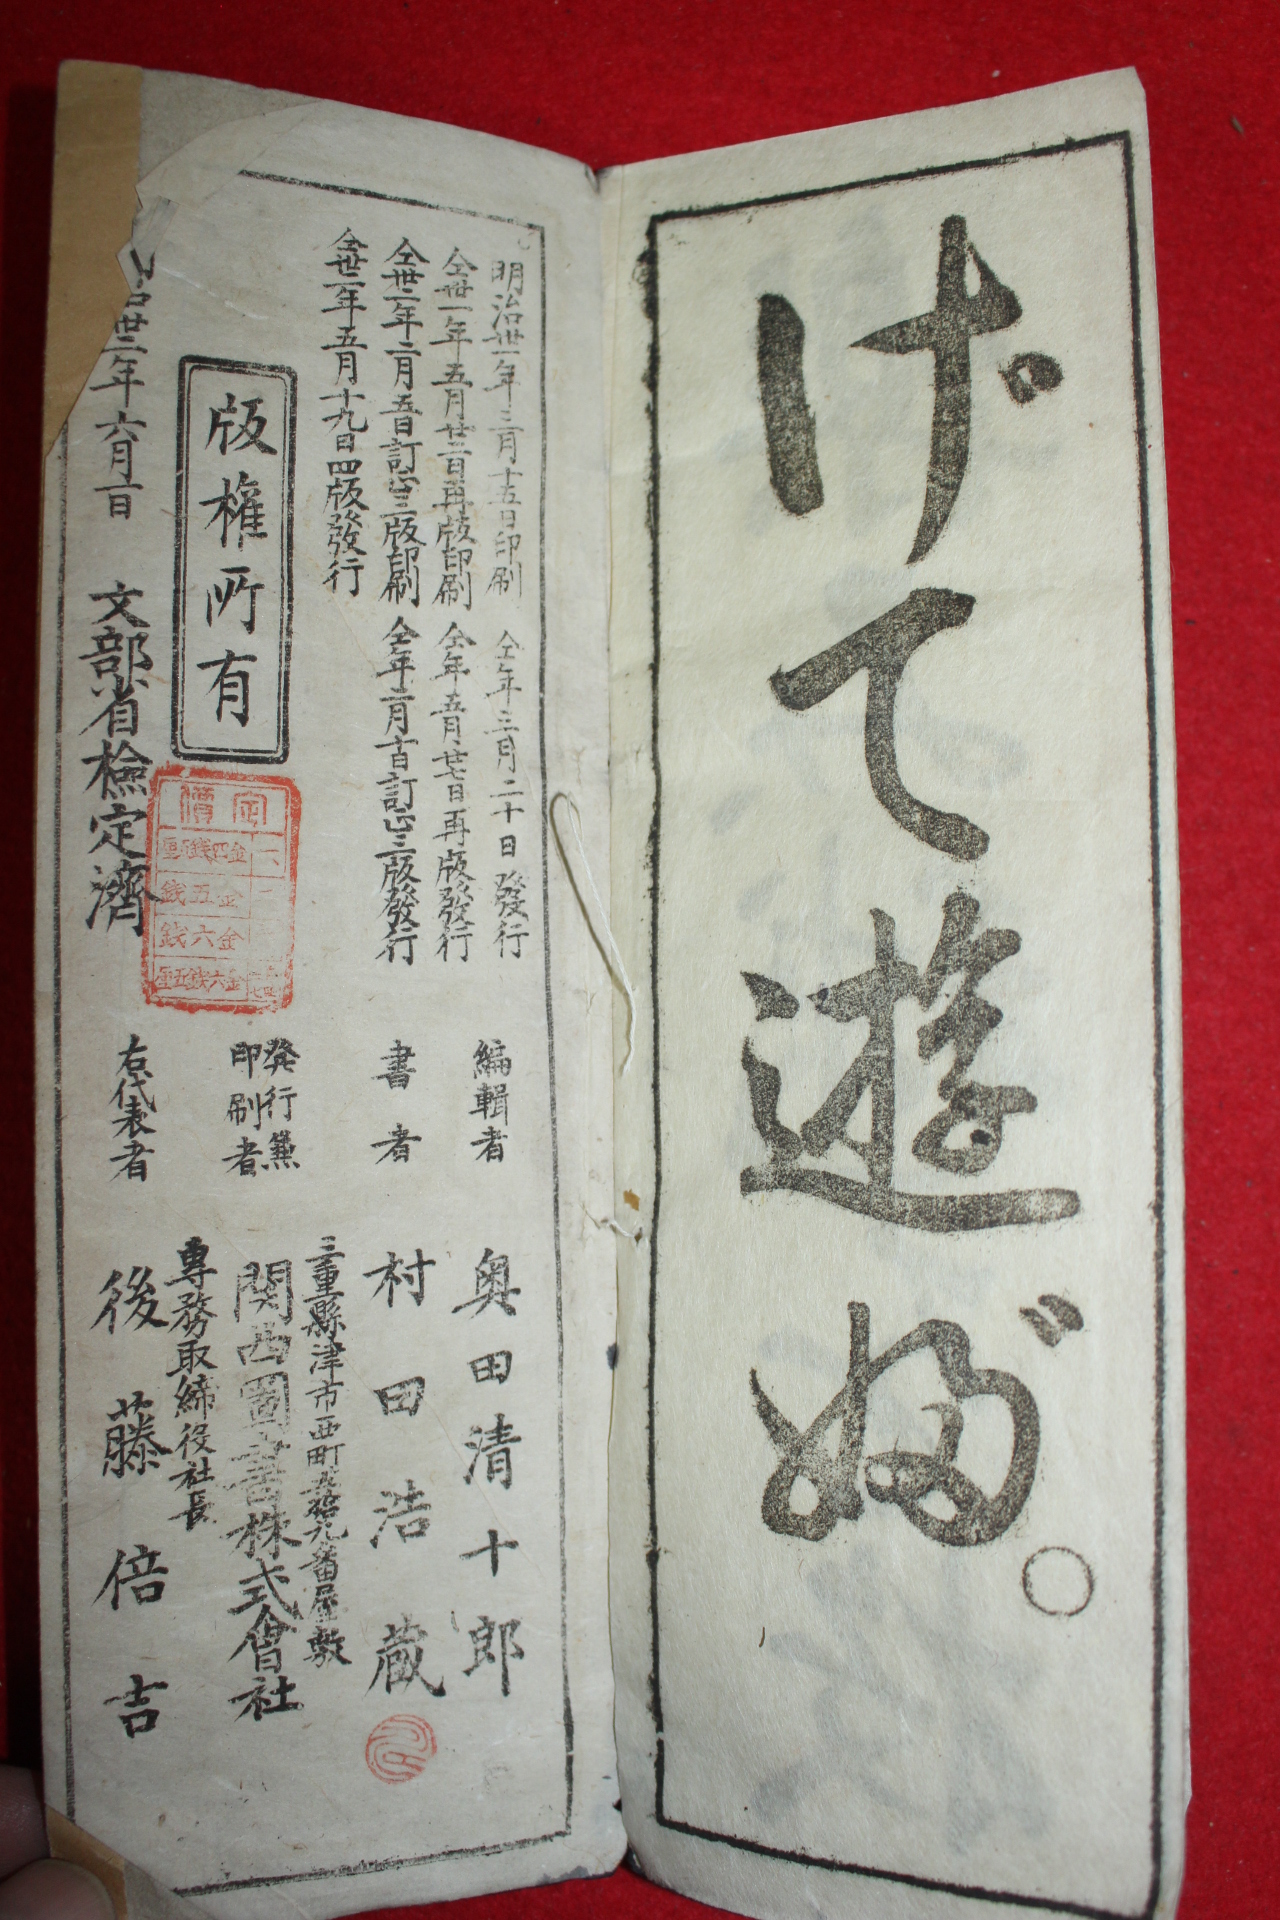 げて遊ぶ。
明治丗一年三月十五日印刷 仝年三月二十日發行
仝丗一年五月廿二日再版印刷 仝年五月廿七日再版發行
仝丗二年二月五日訂正三版印刷 仝年二月十日訂正三版發行
仝丗二年五月十九日四版發行
版權所有
治丗二年六月一日 文部省檢定濟
定價
金四錢五厘
金五錢
金六錢
金六錢五厘
編輯者 奥田清十郎
書者 村田浩藏
三重縣津市西町五拾九番屋敷
発行兼印刷者 関西圖書株式會社
專務取締役社長
右代表者 後藤倍吉